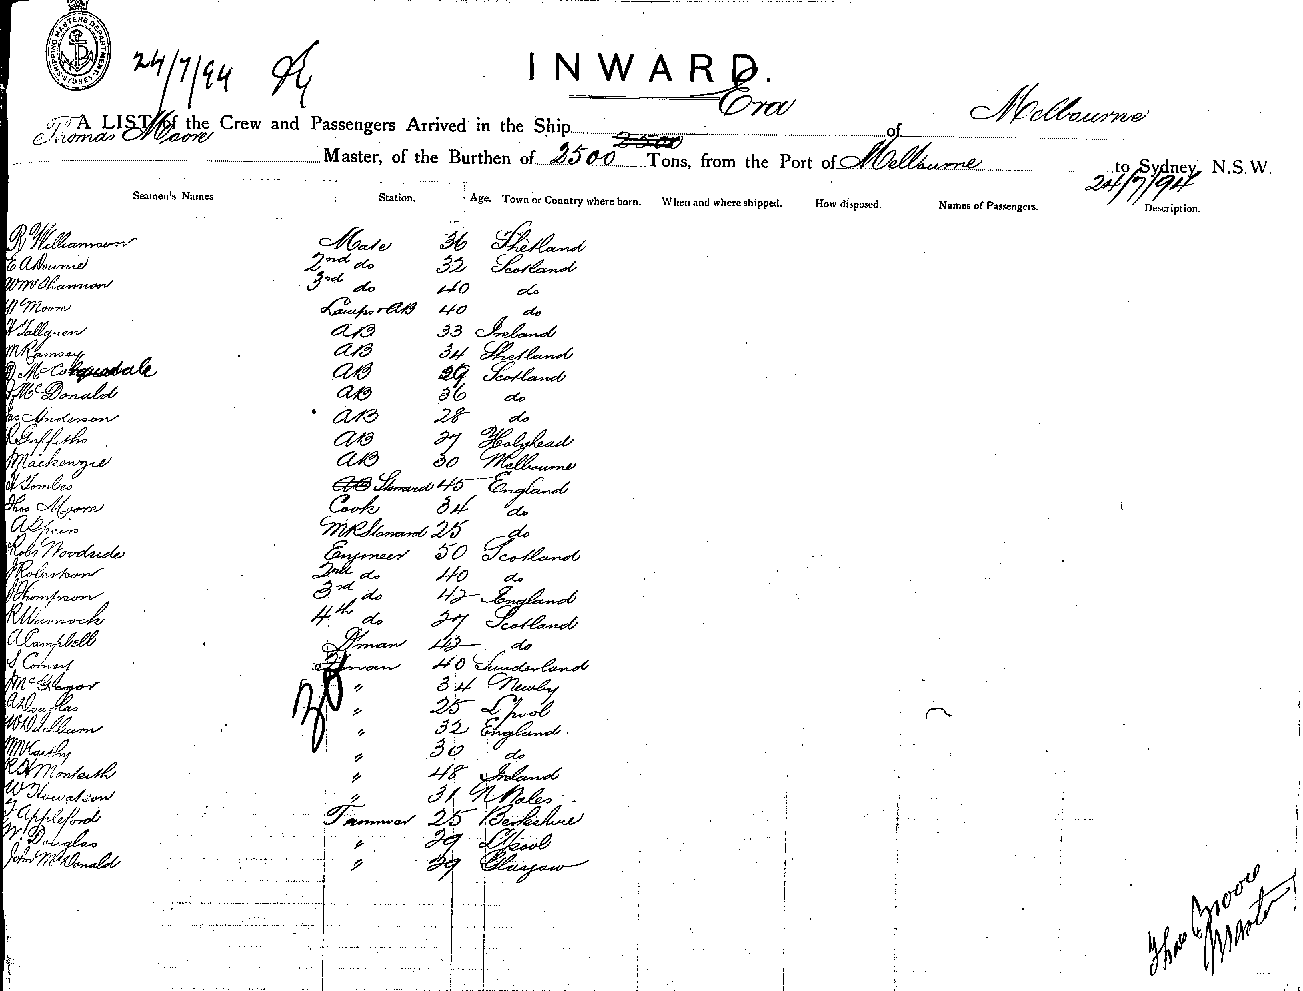 SHIPPING MASTERS DEPARTMENT SYDNEY
24/7/94
INWARD.
A LIST of the Crew and Passengers Arrived in the Ship Era of Melbourne
Thomas Moore Master, of the Burthen of 2500 Tons, from the Port of Melbourne to Sydney, N.S.W.
24/7/94
Seamen's Names Station. Age. Town or Country where born. When and where shipped. How disposed. Names of Passengers. Description.
R Williamson Mate 36 Shetland
E A Bourne 2nd do 32 Scotland
Wm Shannon 3rd do 40 do
Moom Lamps & AB 40 do
Tallguen AB 33 Ireland
M Ramsey AB 34 Shetland
D McCorquodale AB 29 Scotland
McDonald AB 36 do
Anderson AB 28 do
R Griffiths AB 27 Holyhead
Mackenzie AB 30 Melbourne
H Tombs AB Steward 45 England
Thos Moom Cook 34 do
M R Steward 25 do
Robt Woodside Engineer 50 Scotland
J Robertson 2nd do 40 do
Thompson 3rd do 42 England
R Warnock 4th do 27 Scotland
A Campbell Dkman 42 do
S Corney Fireman 40 Sunderland
" 34 Newby
A Douglas " 25 L'pool
" 32 England
McCarthy " 30 do
R H Monteith " 48 Ireland
W Howatson " 31 N Wales
J Appleford Trimmer 25 Berkshire
W. Douglas " 29 L'pool
John McDonald " 29 Glasgow
30
Thos Moore
Master